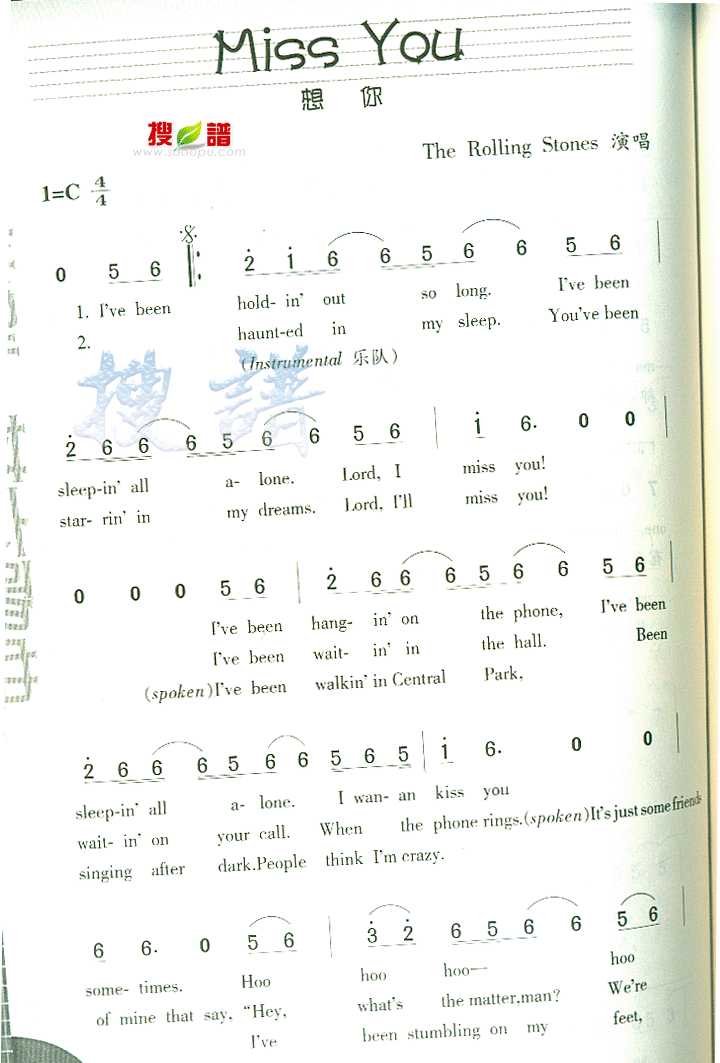 Miss You
想 你
搜 譜
www.sooopu.com
The Rolling Stones 演唱
1=C 4/4
0 5 6 2 1 6 6 5 6 6 5 6
1. I've been hold- in' out so long. I've been
2. haunt-ed in my sleep. You've been
(Instrumental 乐队)
搜 譜
2 6 6 6 5 6 6 5 6 1 6. 0 0
sleep-in' all a- lone. Lord, I miss you!
star- rin' in my dreams. Lord, I'll miss you!
0 0 0 5 6 2 6 6 6 5 6 6 5 6
I've been hang- in' on the phone, I've been
I've been wait- in' in the hall. Been
(spoken)I've been walkin' in Central Park,
2 6 6 6 5 6 6 5 6 5 1 6. 0 0
sleep-in' all a- lone. I wan- an kiss you
wait- in' on your call. When the phone rings.(spoken)It's just some friends
singing after dark.People think I'm crazy.
6 6. 0 5 6 3 2 6 5 6 6 5 6
some- times. Hoo hoo hoo— hoo
of mine that say, "Hey, what's the matter,man? We're
I've been stumbling on my feet,